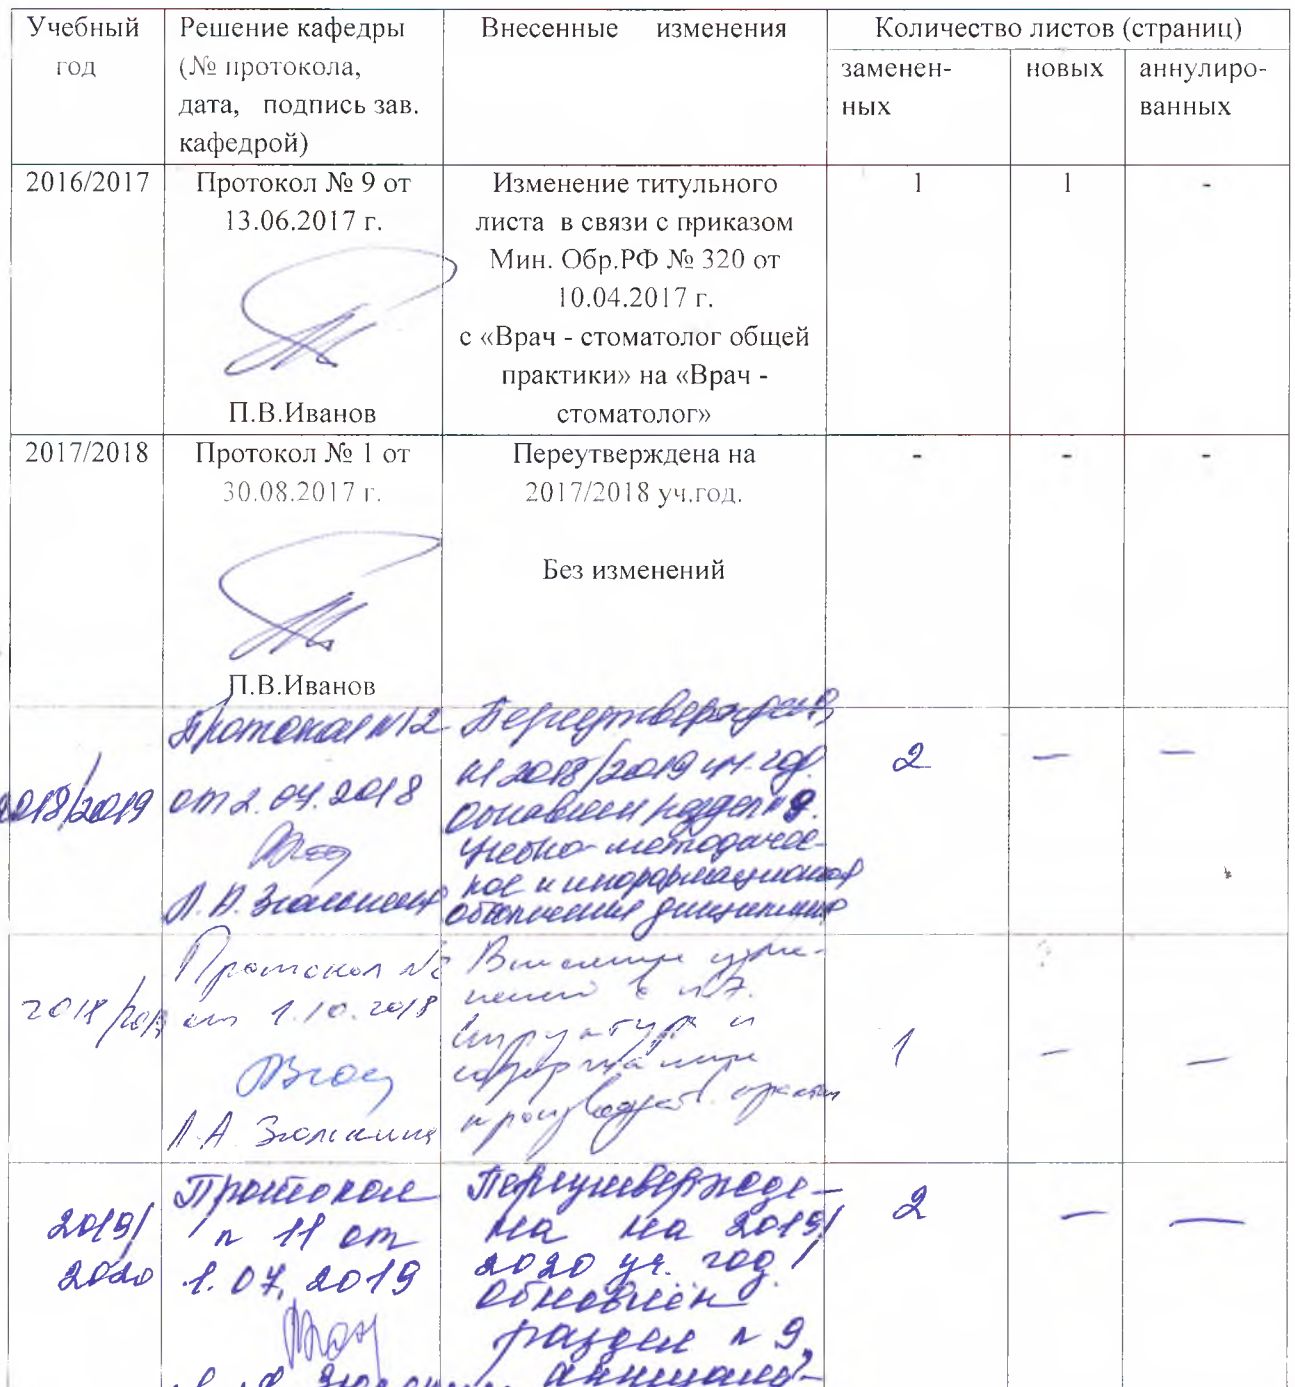 Учебный год
Решение кафедры
(№ протокола,
дата, подпись зав.
кафедрой)
Внесенные изменения
Количество листов (страниц)
заменен-
ных
новых
аннулиро-
ванных
2016/2017
Протокол № 9 от
13.06.2017 г.
П.В.Иванов
Изменение титульного
листа в связи с приказом
Мин. Обр.РФ № 320 от
10.04.2017 г.
с «Врач - стоматолог общей
практики» на «Врач -
стоматолог»
1
1
-
2017/2018
Протокол № 1 от
30.08.2017 г.
П.В.Иванов
Переутверждена на
2017/2018 уч.год.
Без изменений
-
-
-
2018/2019
Протокол №12
от 2.07.2018
Л.А. Зюлькина
Переутверждена
на 2018/2019 уч. год.
Обновлен раздел п 9.
учебно-методичес-
кое и информационное
обеспечение дисциплины
2
-
-
2018/2019
Протокол №
от 1.10.2018
Л.А. Зюлькина
Внесение изме-
нений в п.7.
Структура и
содержание
производст. практи
1
-
-
2019/
2020
Протокол
п 11 от
1.07.2019
Переутвержде-
на на 2019/
2020 уч. год
Обновлён
раздел п 9
2
-
-